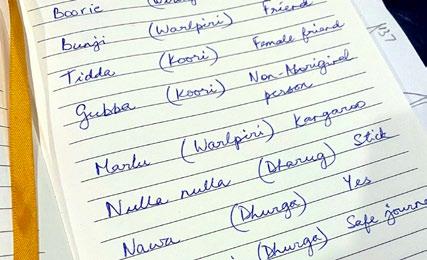 Boorie
Bunji (Warlpiri) Friend
Tidda (Koori) Female friend
Gubba (Koori) Non-Aboriginal
person
Marlu (Warlpiri) Kangaroo
Nulla nulla (Dharug) Stick
Nawa (Dhurga) Yes
(Dhurga) Safe journe
137